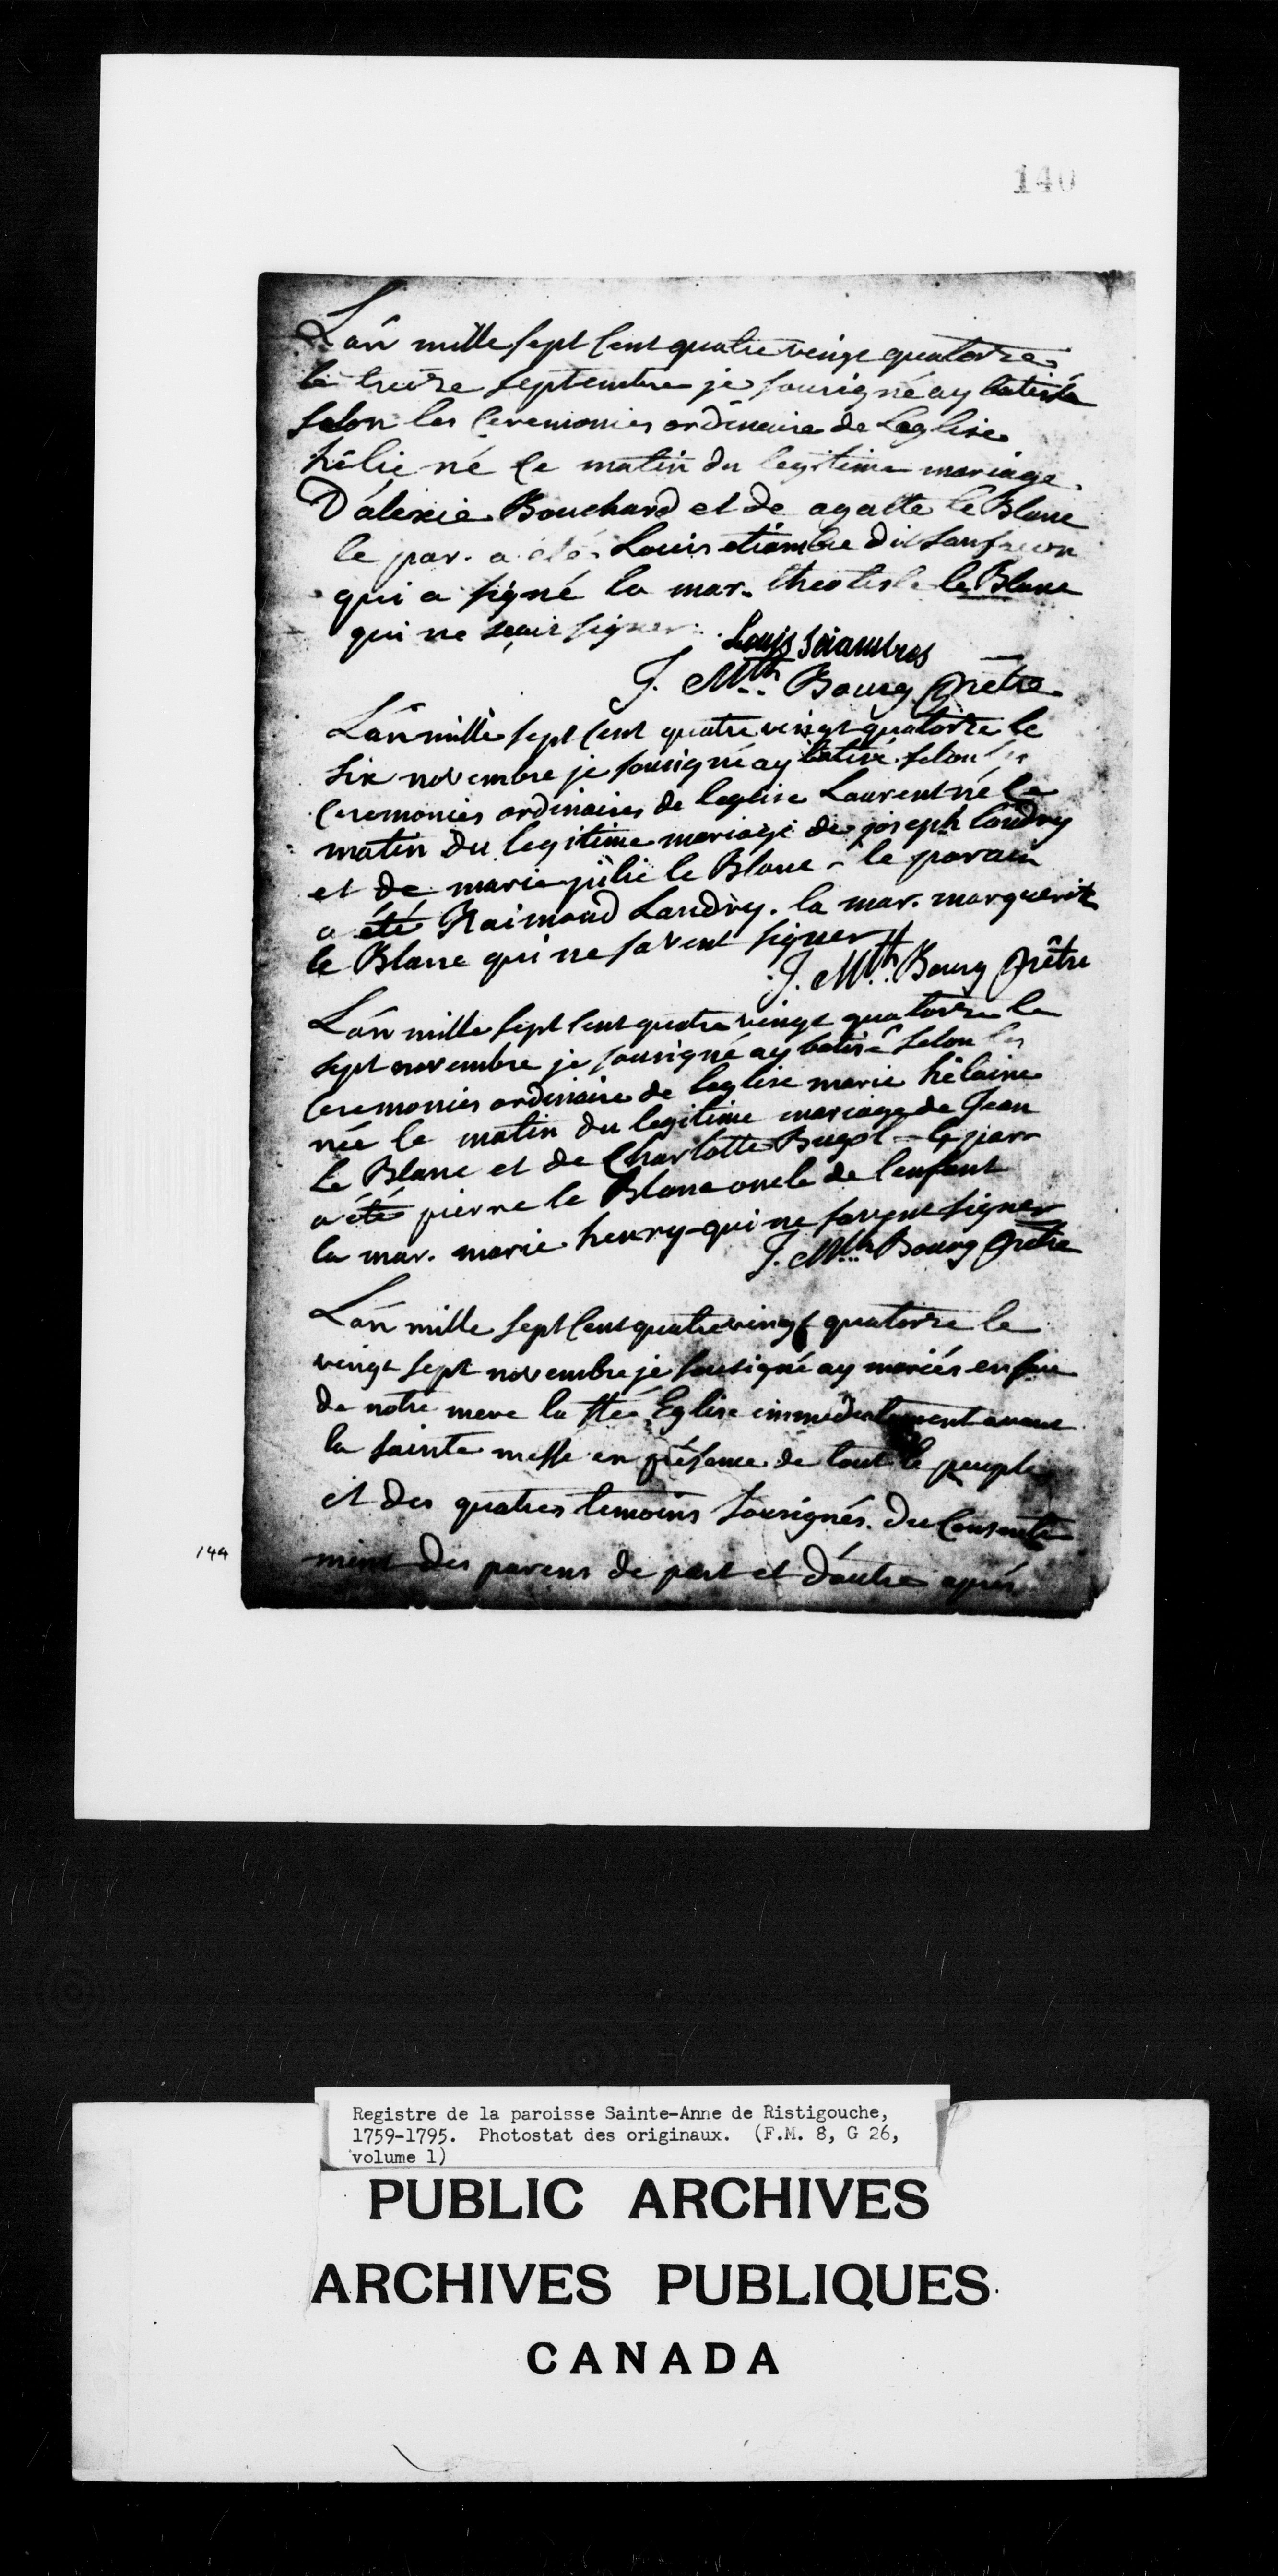 140
L'an mille sept cent quatre vingt quatorze
le treize septembre je sousigné ay batisé
selon les ceremonies ordinaire de Leglise
hélie né ce matin du legitime mariage
D'alexie Bouchard et de agatte le Blanc
le par. a été Louis etiambre dit sanfacon
qui a signé la mar. theotiste le Blanc
qui ne scait signer. Louis
J. Mth. Bourg Prêtre
L'an mille sept cent quatre vingt quatorze le
six novembre je sousigné ay batisé selon les
ceremonies ordinaires de leglise Laurent né ce
matin du legitime mariage de joseph landry
et de marie julie le Blanc - le parain
a été Raimond Landry. la mar. marguerite
le Blanc qui ne savent signer
J. Mth. Bourg Prêtre
L'an mille sept cent quatre vingt quatorze le
sept novembre je sousigné ay batisé selon les
ceremonies ordinaire de leglise marie hélaine
née le matin du legitime mariage de Jean
Le Blanc et de Charlotte Bugol - le par.
a été pierre le Blanc oncle de l'enfant
la mar. marie henry qui ne savent signer
J. Mth. Bourg Prêtre
L'an mille sept cent quatre vingt quatorze le
vingt sept novembre je sousigné ay mariés en face
de notre mere la Ste Eglise immediatement avant
la sainte messe en présence de tout le peuple
et des quatres temoins sousignés. du consente
144
ment des parens de part et d'autre après
Registre de la paroisse Sainte-Anne de Ristigouche,
1759-1795. Photostat des originaux. (F.M. 8, G 26,
volume 1)
PUBLIC ARCHIVES
ARCHIVES PUBLIQUES
CANADA